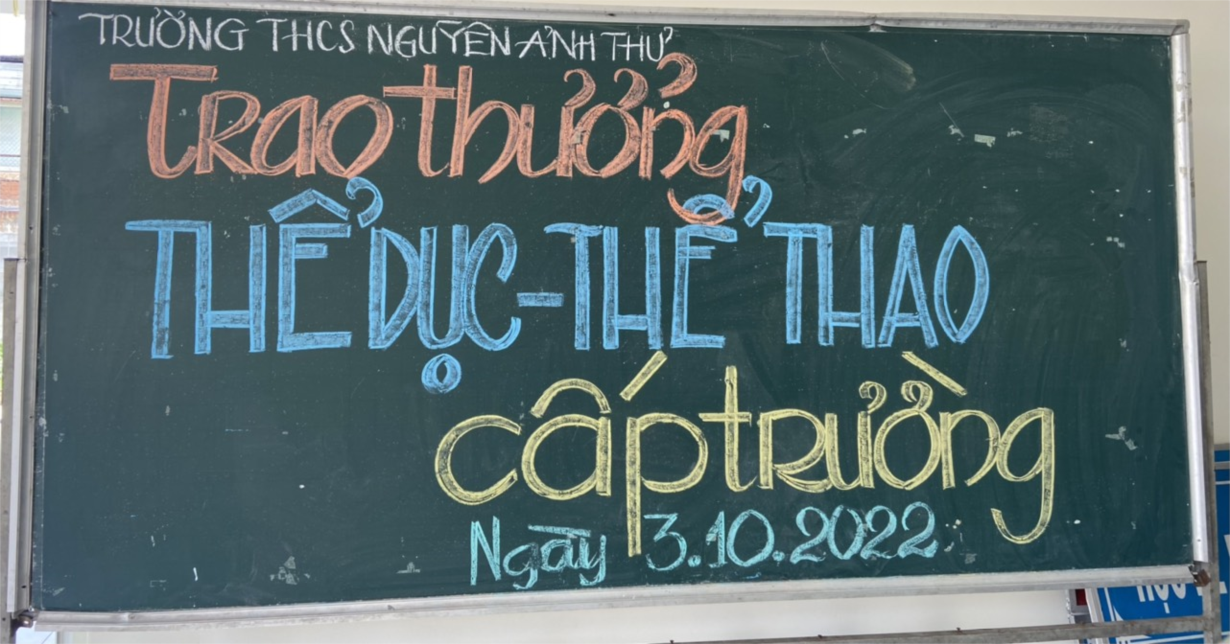 TRƯỜNG THCS NGUYỄN ẢNH THỦ
Trao thưởng
THỂ DỤC-THỂ THAO
cấp trường
Ngày 3.10.2022